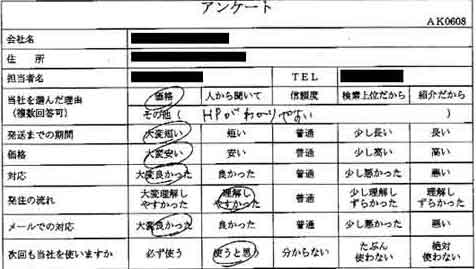 アンケート
AK0608
会社名
住 所
担当者名 TEL
当社を選んだ理由 (複数回答可) 価格 人から聞いて 信頼度 検索上位だから 紹介だから
その他 ( HPがわかりやすい )
発送までの期間 大変短い 短い 普通 少し長い 長い
価格 大変安い 安い 普通 少し高い 高い
対応 大変良かった 良かった 普通 少し悪かった 悪い
発注の流れ 大変理解しやすかった 理解しやすかった 普通 少し理解しずらかった 理解しずらかった
メールでの対応 大変良かった 良かった 普通 少し悪かった 悪い
次回も当社を使いますか 必ず使う 使うと思う 分からない たぶん使わない 絶対使わない